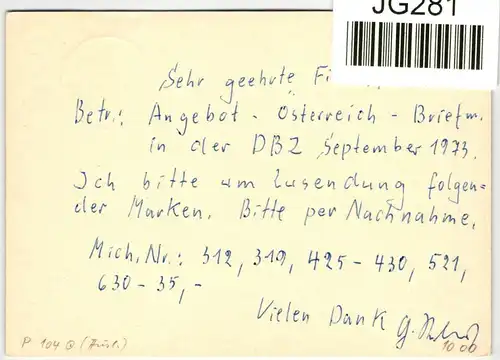 JG281
Sehr geehrte Fi
Betr.: Angebot - Österreich - Briefm.
in der DBZ September 1973.
Ich bitte um Zusendung folgen=
der Marken. Bitte per Nachnahme.
Mich. Nr.: 312, 319, 425 - 430, 521,
630 - 35, -
Vielen Dank G.
P 104 a (Ausl.) 10 00